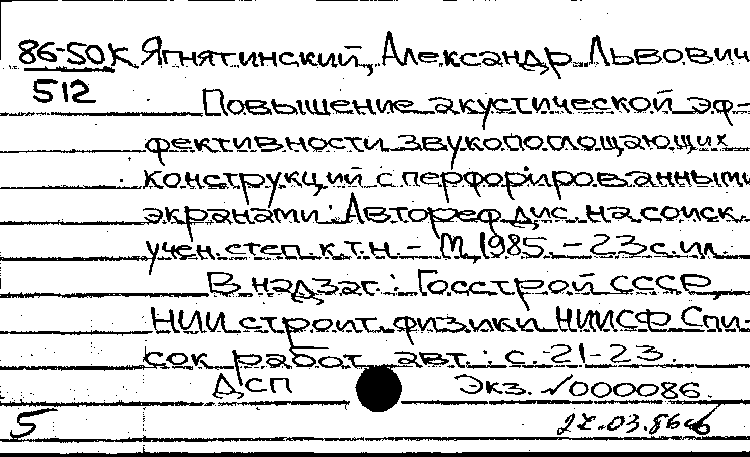 86-50К Ягнятинский, Александр Львович
512
Повышение акустической эф-
фективности звукопоглощающих
конструкций с перфорированными
экранами: Автореф дис. на соиск
учен. степ. к.т.н. - М, 1985. - 23с. ил.
В надзаг: Госстрой СССР,
НИИ строит. физики НИИСФ Спи-
сок работ авт.: с. 21-23.
ДСП Экз. №000086
5 27.03.86